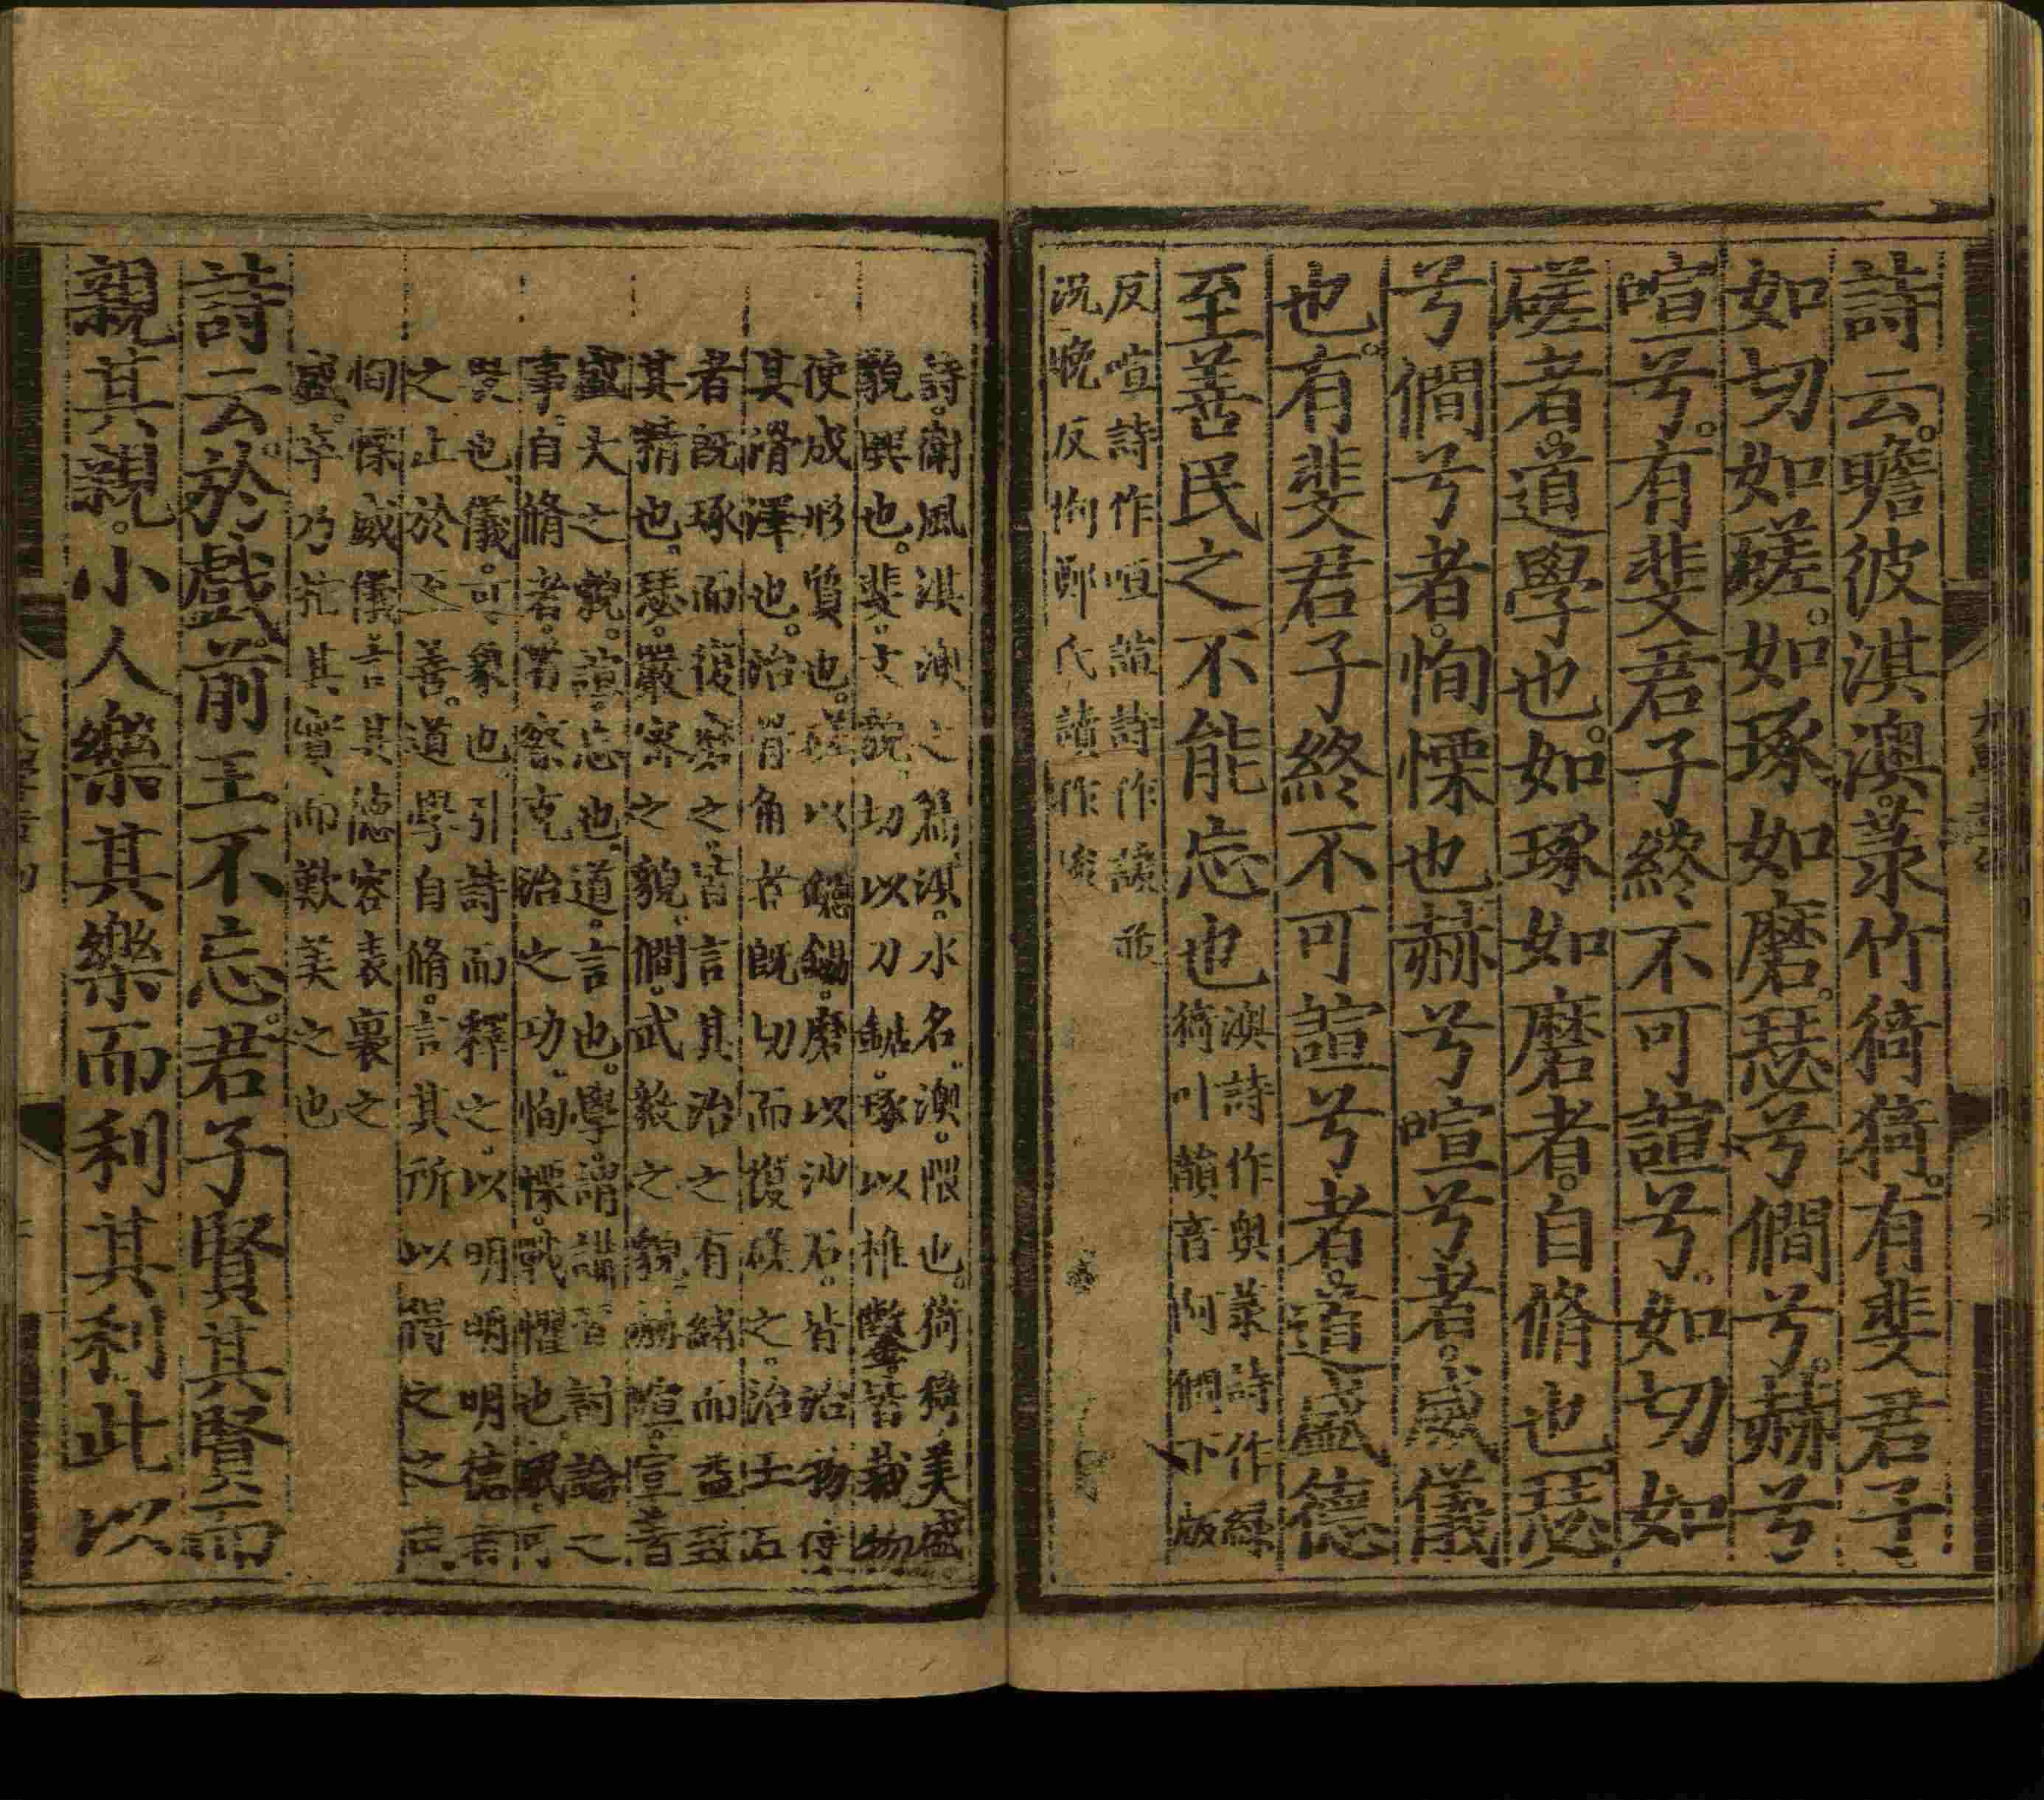 詩云。瞻彼淇澳。菉竹猗猗。有斐君子
如切如磋。如琢如磨。瑟兮僩兮。赫兮
喧兮。有斐君子終不可諠兮。如切如
磋者。道學也。如琢如磨者。自脩也瑟
兮僩兮者。恂慄也赫兮喧兮者。威儀
也。有斐君子終不可諠兮者。道盛德
至善民之不能忘也
澳詩作奧菉詩作綠
猗叶韻音阿僩下版
反喧詩作咺諠詩作諼並
況晚反恂鄭氏讀作峻
詩。衛風淇澳之篇。淇。水名。澳。隈也。猗猗。美盛
貌興也。斐。文貌切以刀鋸。琢以椎鑿皆裁物
使成形質也。磋以鑢鐋。磨以沙石。皆治物使
其滑澤也。治骨角者既切而復磋之。治玉石
者既琢而復磨之。皆言其治之有緒而益致
其精也。瑟。嚴密之貌。僩。武毅之貌。赫喧。宣著
盛大之貌。諠。忘也。道。言也。學。謂講習討論之
事。自脩者。省察克治之功。恂慄。戰懼也。威。可
畏也。儀。可象也。引詩而釋之。以明明明德者
之止於至善。道學自脩。言其所以得之之由。
恂慄威儀。言其德容表裏之
盛。卒乃指其實而歎美之也
詩云。於戲。前王不忘。君子賢其賢而
親其親。小人樂其樂而利其利此以